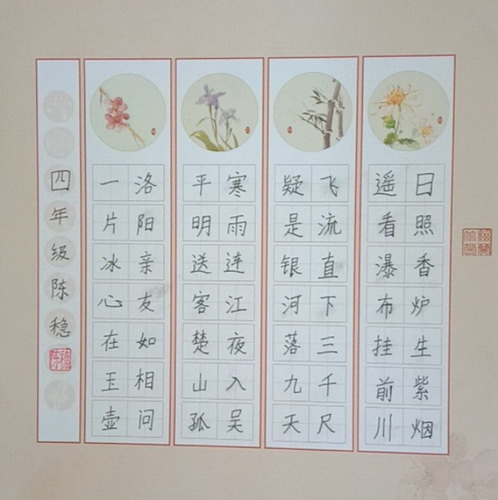 日照香炉生紫烟
遥看瀑布挂前川
飞流直下三千尺
疑是银河落九天
寒雨连江夜入吴
平明送客楚山孤
洛阳亲友如相问
一片冰心在玉壶
四年级陈稳